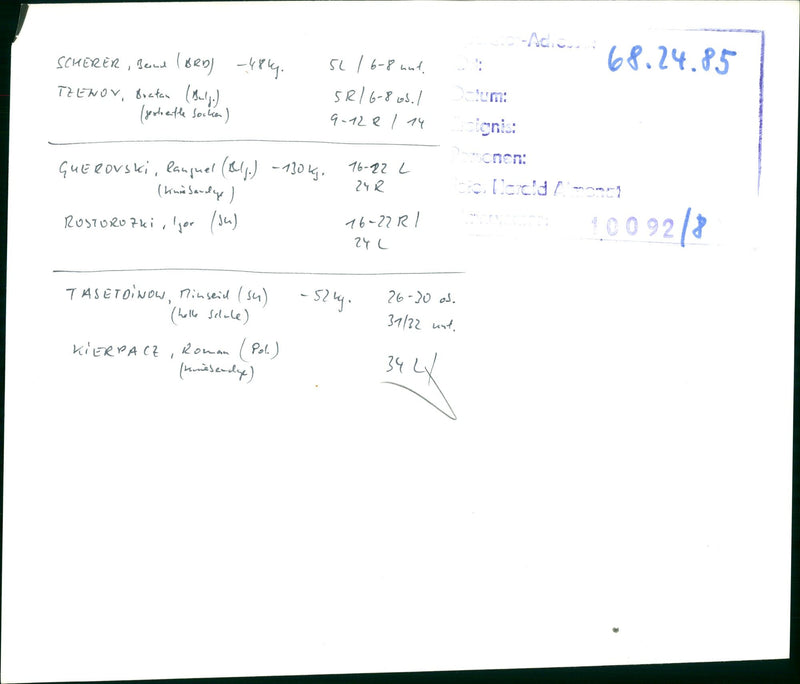 68.24.85
SCHERER, Bernd (BRD) -48kg. 5L / 6-8 unt.
TZENOV, Bratan (Bulg.) 5R/6-8 ob./
(gestreifte Socken) 9-12 R / 14
Datum:
GUEROVSKI, Ranguel (Bulg.) -130kg. 16-22 L
(Kniebandage) 24R
Foto: Harald
ROSTOROZKI, Igor (SU) 16-22R/
24 L
10092/8
TASETDINOW, Minseid (SU) -52kg. 26-30 ob.
(helle Schuhe) 31/32 unt.
KIERPACZ, Roman (Pol.)
(Kniebandage) 34 L